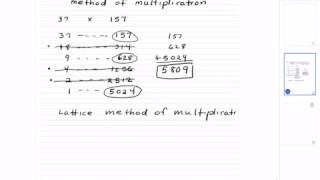 method of multiplication
37 x 157
37 ---- 157 157
18 ---- 314 628
9 ---- 628 +5024
4 ---- 1256 5809
2 ---- 2512
1 ---- 5024
Lattice method of multiplicati